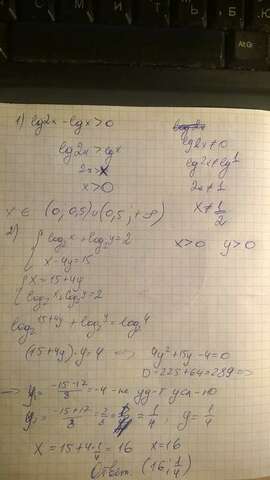 1) lg2x - lgx > 0
lg2x ≠ 0
lg2x > lgx
lg2x ≠ lg1
2x > x
2x ≠ 1
x > 0
x ≠ 1/2
x ∈ (0; 0,5) ∪ (0,5; +∞)
2)
{ log₂x + log₂y = 2
x > 0 y > 0
x - 4y = 15
{ x = 15 + 4y
log₂x + log₂y = 2
log₂15+4y + log₂y = log₂4
(15+4y)·y = 4 => 4y² + 15y - 4 = 0
D = 225 + 64 = 289 =>
y₁ = (-15-17)/8 = -4 - не уд-т усл-ю
y₂ = (-15+17)/8 = 2/8 = 1/4, y = 1/4
x = 15 + 4·1/4 = 16 x = 16
Ответ: (16; 1/4)